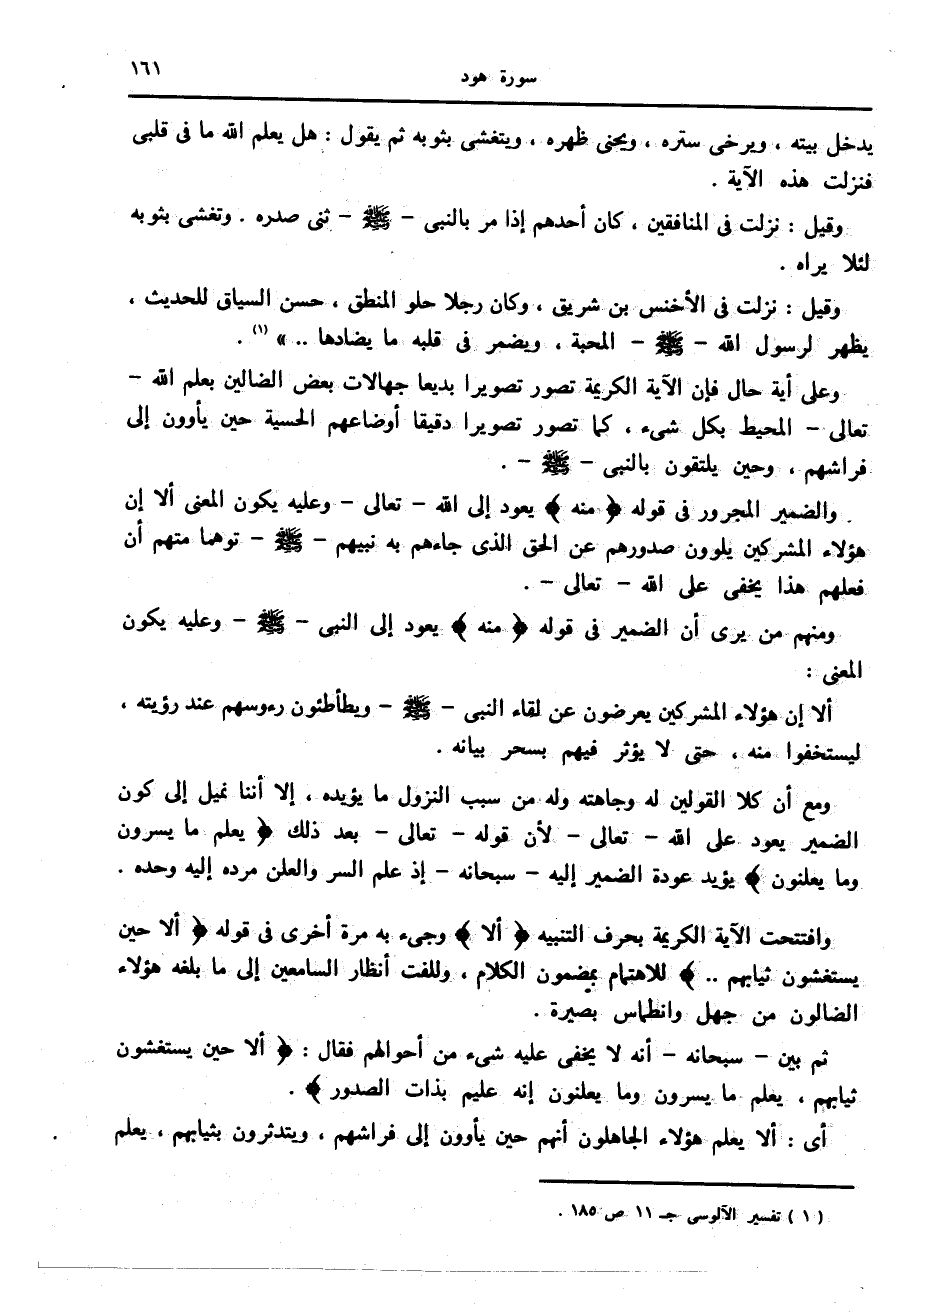 سورة هود ١٦١
يدخل بيته ، ويرخى ستره ، ويحنى ظهره ، ويتغشى بثوبه ثم يقول : هل يعلم الله ما فى قلبى
فنزلت هذه الآية .
وقيل : نزلت فى المنافقين ، كان أحدهم إذا مر بالنبى - ﷺ - ثنى صدره . وتغشى بثوبه
لئلا يراه .
وقيل : نزلت فى الأخنس بن شريق ، وكان رجلا حلو المنطق ، حسن السياق للحديث ،
يظهر لرسول الله - ﷺ - المحبة ، ويضمر فى قلبه ما يضادها .. » (١) .
وعلى أية حال فإن الآية الكريمة تصور تصويرا بديعا جهالات بعض الضالين بعلم الله -
تعالى - المحيط بكل شىء ، كما تصور تصويرا دقيقا أوضاعهم الحسية حين يأوون إلى
فراشهم ، وحين يلتقون بالنبى - ﷺ - .
والضمير المجرور فى قوله ﴿ منه ﴾ يعود إلى الله - تعالى - وعليه يكون المعنى ألا إن
هؤلاء المشركين يلوون صدورهم عن الحق الذى جاءهم به نبيهم - ﷺ - توهما منهم أن
فعلهم هذا يخفى على الله - تعالى - .
ومنهم من يرى أن الضمير فى قوله ﴿ منه ﴾ يعود إلى النبى - ﷺ - وعليه يكون
المعنى :
ألا إن هؤلاء المشركين يعرضون عن لقاء النبى - ﷺ - ويطأطئون رءوسهم عند رؤيته ،
ليستخفوا منه ، حتى لا يؤثر فيهم بسحر بيانه .
ومع أن كلا القولين له وجاهته وله من سبب النزول ما يؤيده ، إلا أننا نميل إلى كون
الضمير يعود على الله - تعالى - لأن قوله - تعالى - بعد ذلك ﴿ يعلم ما يسرون
وما يعلنون ﴾ يؤيد عودة الضمير إليه - سبحانه - إذ علم السر والعلن مرده إليه وحده .
وافتتحت الآية الكريمة بحرف التنبيه ﴿ ألا ﴾ وجىء به مرة أخرى فى قوله ﴿ ألا حين
يستغشون ثيابهم .. ﴾ للاهتمام بمضمون الكلام ، وللفت أنظار السامعين إلى ما بلغه هؤلاء
الضالون من جهل وانطماس بصيرة .
ثم بين - سبحانه - أنه لا يخفى عليه شىء من أحوالهم فقال : ﴿ ألا حين يستغشون
ثيابهم ، يعلم ما يسرون وما يعلنون إنه عليم بذات الصدور ﴾ .
أى : ألا يعلم هؤلاء الجاهلون أنهم حين يأوون إلى فراشهم ، ويتدثرون بثيابهم ، يعلم
( ١ ) تفسير الآلوسى جـ ١١ ص ١٨٥ .